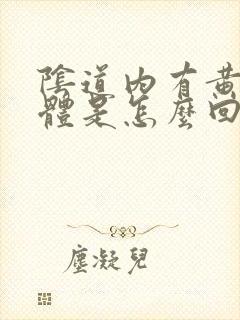 陰道內有黃
體是怎麼回
塵凝兒